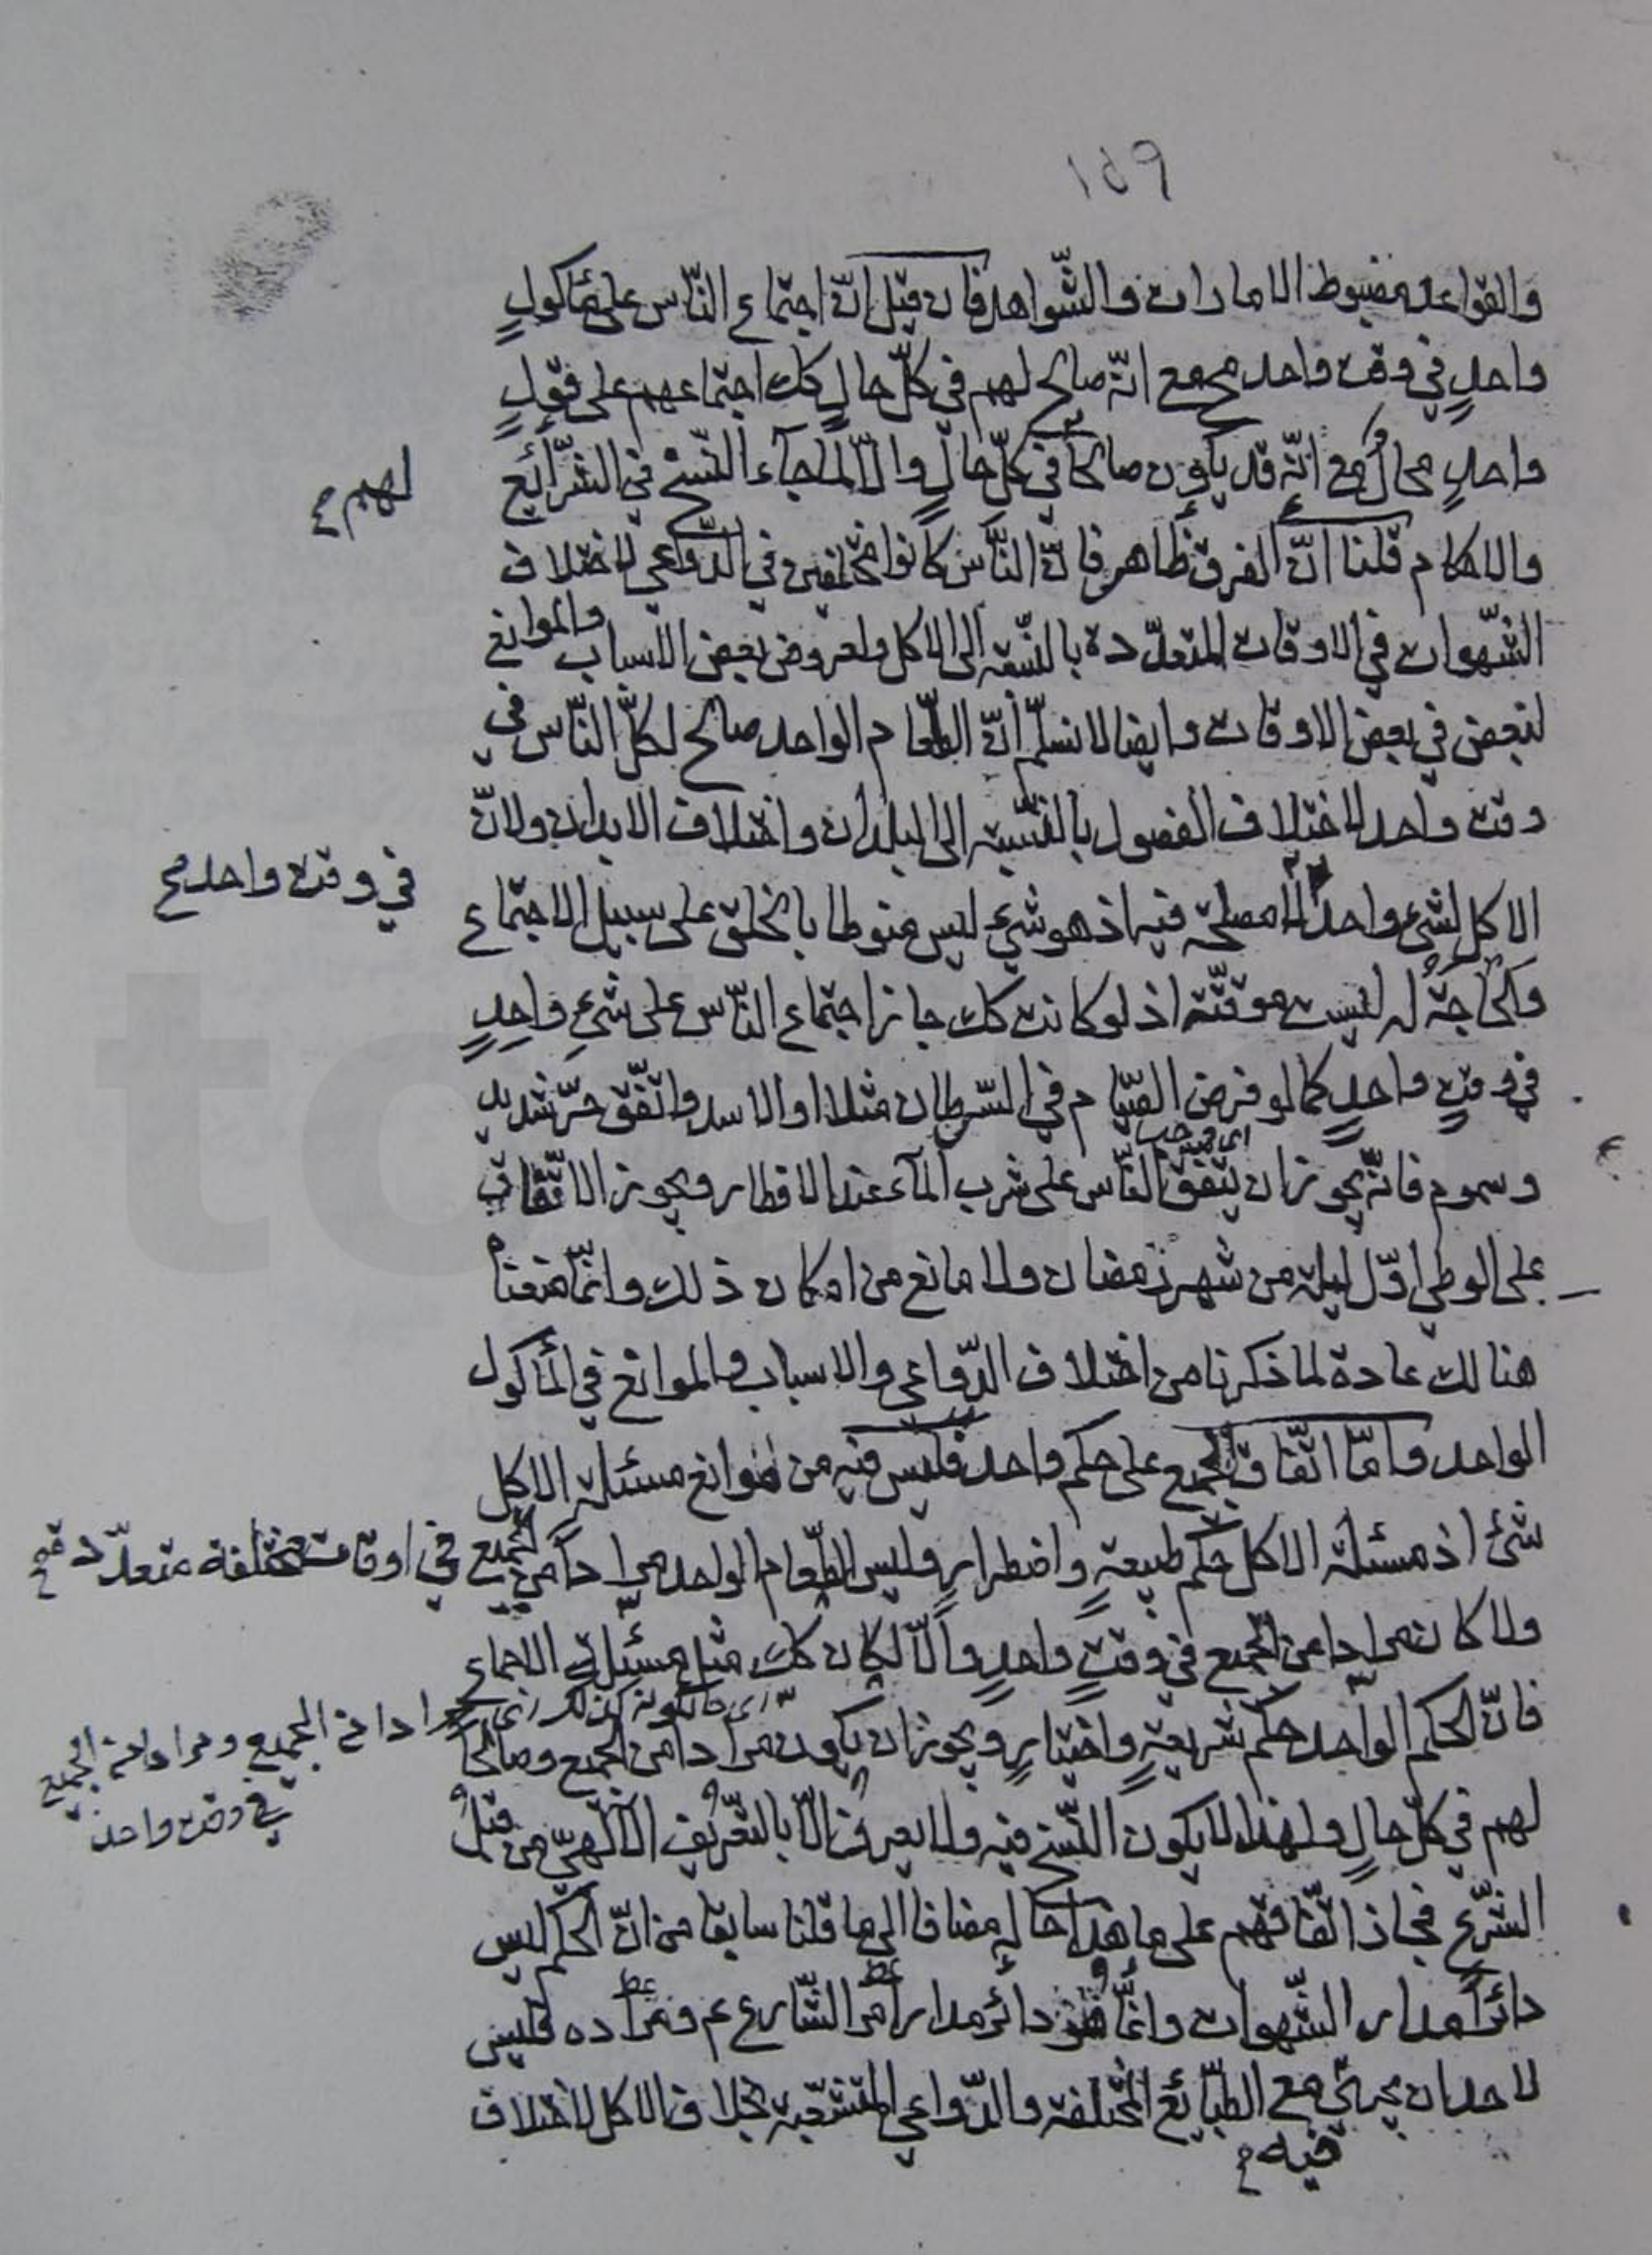 ١٥٩
والقواعد مضبوط الامارات والشّواهد فان قيل انّ اجتماع النّاس على مأكولٍ
واحدٍ في وقت واحد مح مع انّه صالح لهم في كلّ حالٍ كك اجتماعهم على قولٍ
واحدٍ محالٌ مع انّه قد يكون صالحًا في كلّ حالٍ والّا لما جآء النّسخ في الشّرايع
لهم
والاحكام قلنا انّ الفرق ظاهر فانّ النّاس كانوا مختلفين في الدّواعي لاختلاف
الشّهوات في الاوقات المتعدّدة بالنّسبة الى الاكل ولعروض بعض الاسباب والموانع
لبعض في بعض الاوقات وايضا لا نسلّم انّ الطّعام الواحد صالح لكلّ النّاس في
وقت واحد لاختلاف الفصول بالنّسبة الى البلدان واختلاف الابدان ولانّ
الاكل لشيء واحد لا مصلحة فيه اذ هو شيء ليس منوطا بالخلق على سبيل الاجتماع
في وقت واحد صح
والحاجة له ليست موقّتة اذ لو كانت كك جاز اجتماع النّاس على شيءٍ واحدٍ
في وقتٍ واحدٍ كما لو فرض الصّيام في السّرطان مثلا او الاسد واتّفق حرّ شديد
وسموم فانّه يجوز ان يتّفق النّاس على شرب المآء عند الافطار ويجوز الاتّفاق
على الوطي اوّل ليلة من شهر رمضان ولا مانع من امكان ذلك وانّما منعناه
هنالك عادة لما ذكرنا من اختلاف الدّواعي والاسباب والموانع في المأكول
الواحد وامّا اتّفاق الجميع على حكم واحد فليس فيه من موانع مسئلة الاكل
شئ اذ مسئلة الاكل حكم طبيعةٍ واضطرارٍ وليس الطّعام الواحد مرادًا من الجميع
في اوقات مختلفة متعدّدة صح
ولا كان مرادا من الجميع في وقتٍ واحدٍ والّا لكان كك مثل مسئلة الاجماع
فانّ الحكم الواحد حكم شريعةٍ واختيارٍ ويجوز ان يكون مرادا من الجميع وصالحًا
مرادا من الجميع ومرادا من الجميع
في وقت واحد
لهم في كلّ حالٍ ولهذا لا يكون النّسخ فيه ولا يعرف الّا بالتّعريف الالٰهيّ من قبل
الشّرع فجاز اتّفاقهم على ما هذا حاله مضافا الى ما قلنا سابقا من انّ الحكم ليس
دائرًا مدار الشّهوات وانّما هو دائر مدار امر الشّارع عم ومراده فليس
لاحد ان يجري مع الطّبائع المختلفة والدّواعي المتشعّبة بخلاف الاكل لاختلاف
فيه